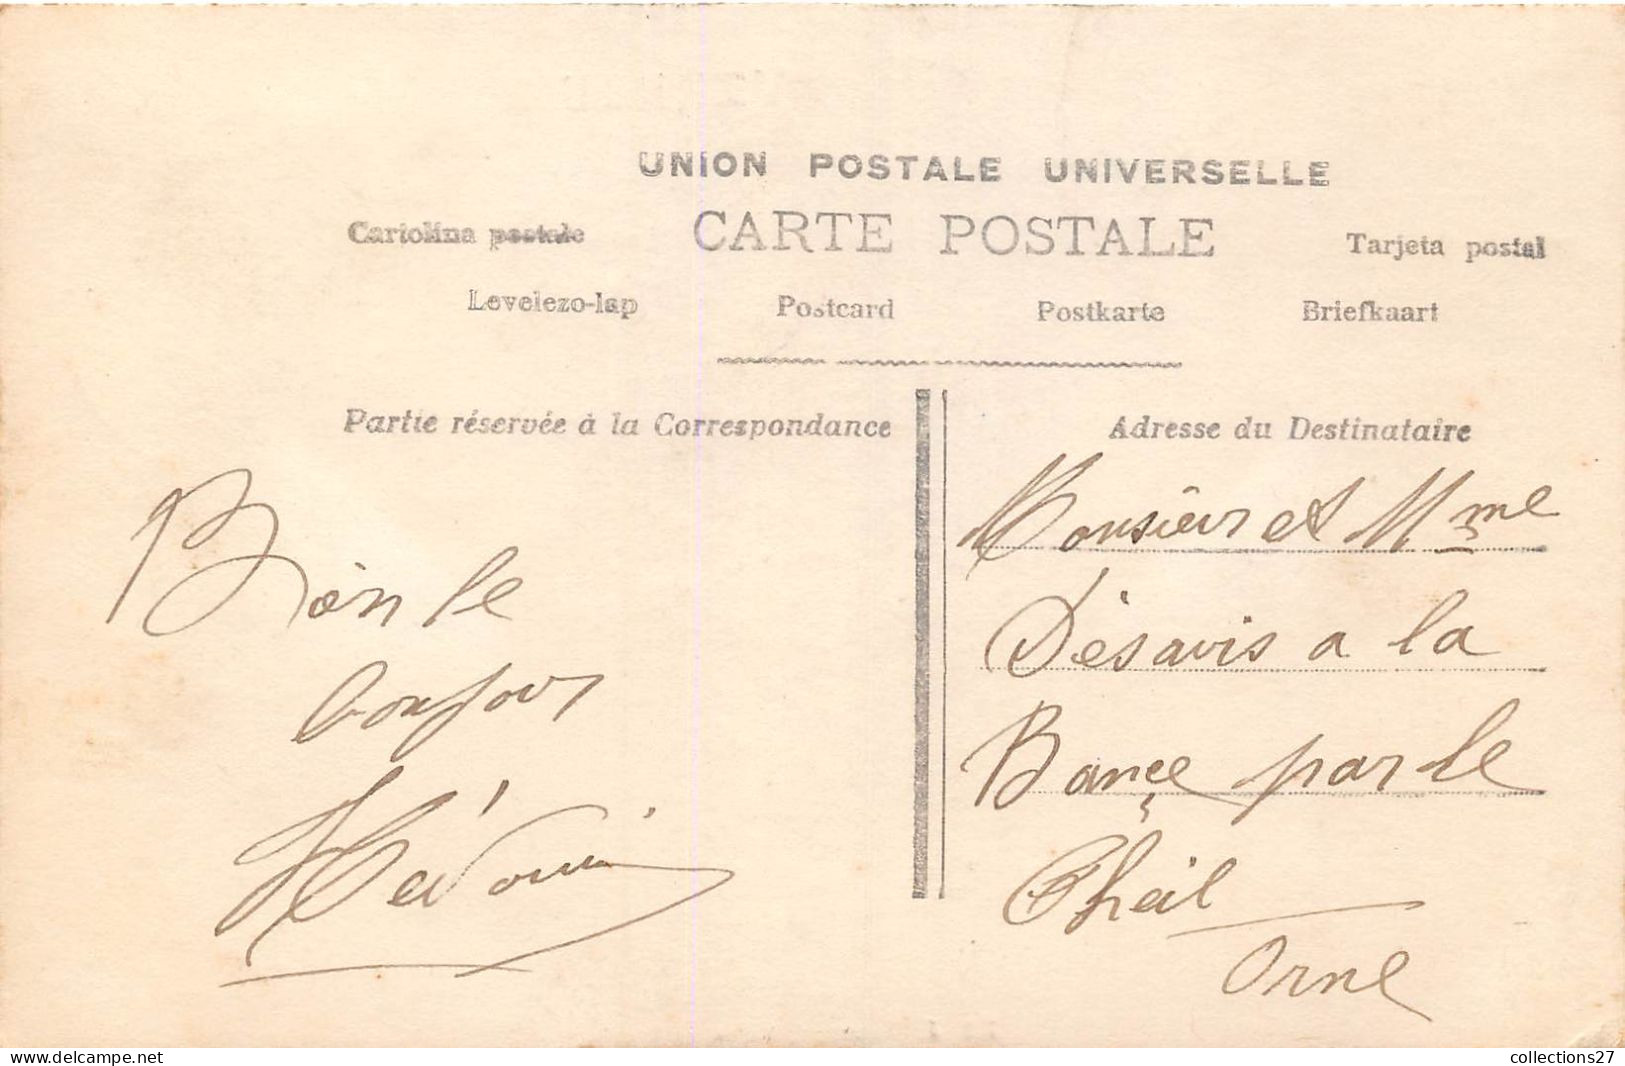 UNION POSTALE UNIVERSELLE
Cartolina postale CARTE POSTALE Tarjeta postal
Levelezo-lap Postcard Postkarte Briefkaart
Partie réservée à la Correspondance
Bien le
bonjour
Adresse du Destinataire
Monsieur et Mme
Désavis a la
Bance par le
Theil
Orne
delcampe.net
collections27